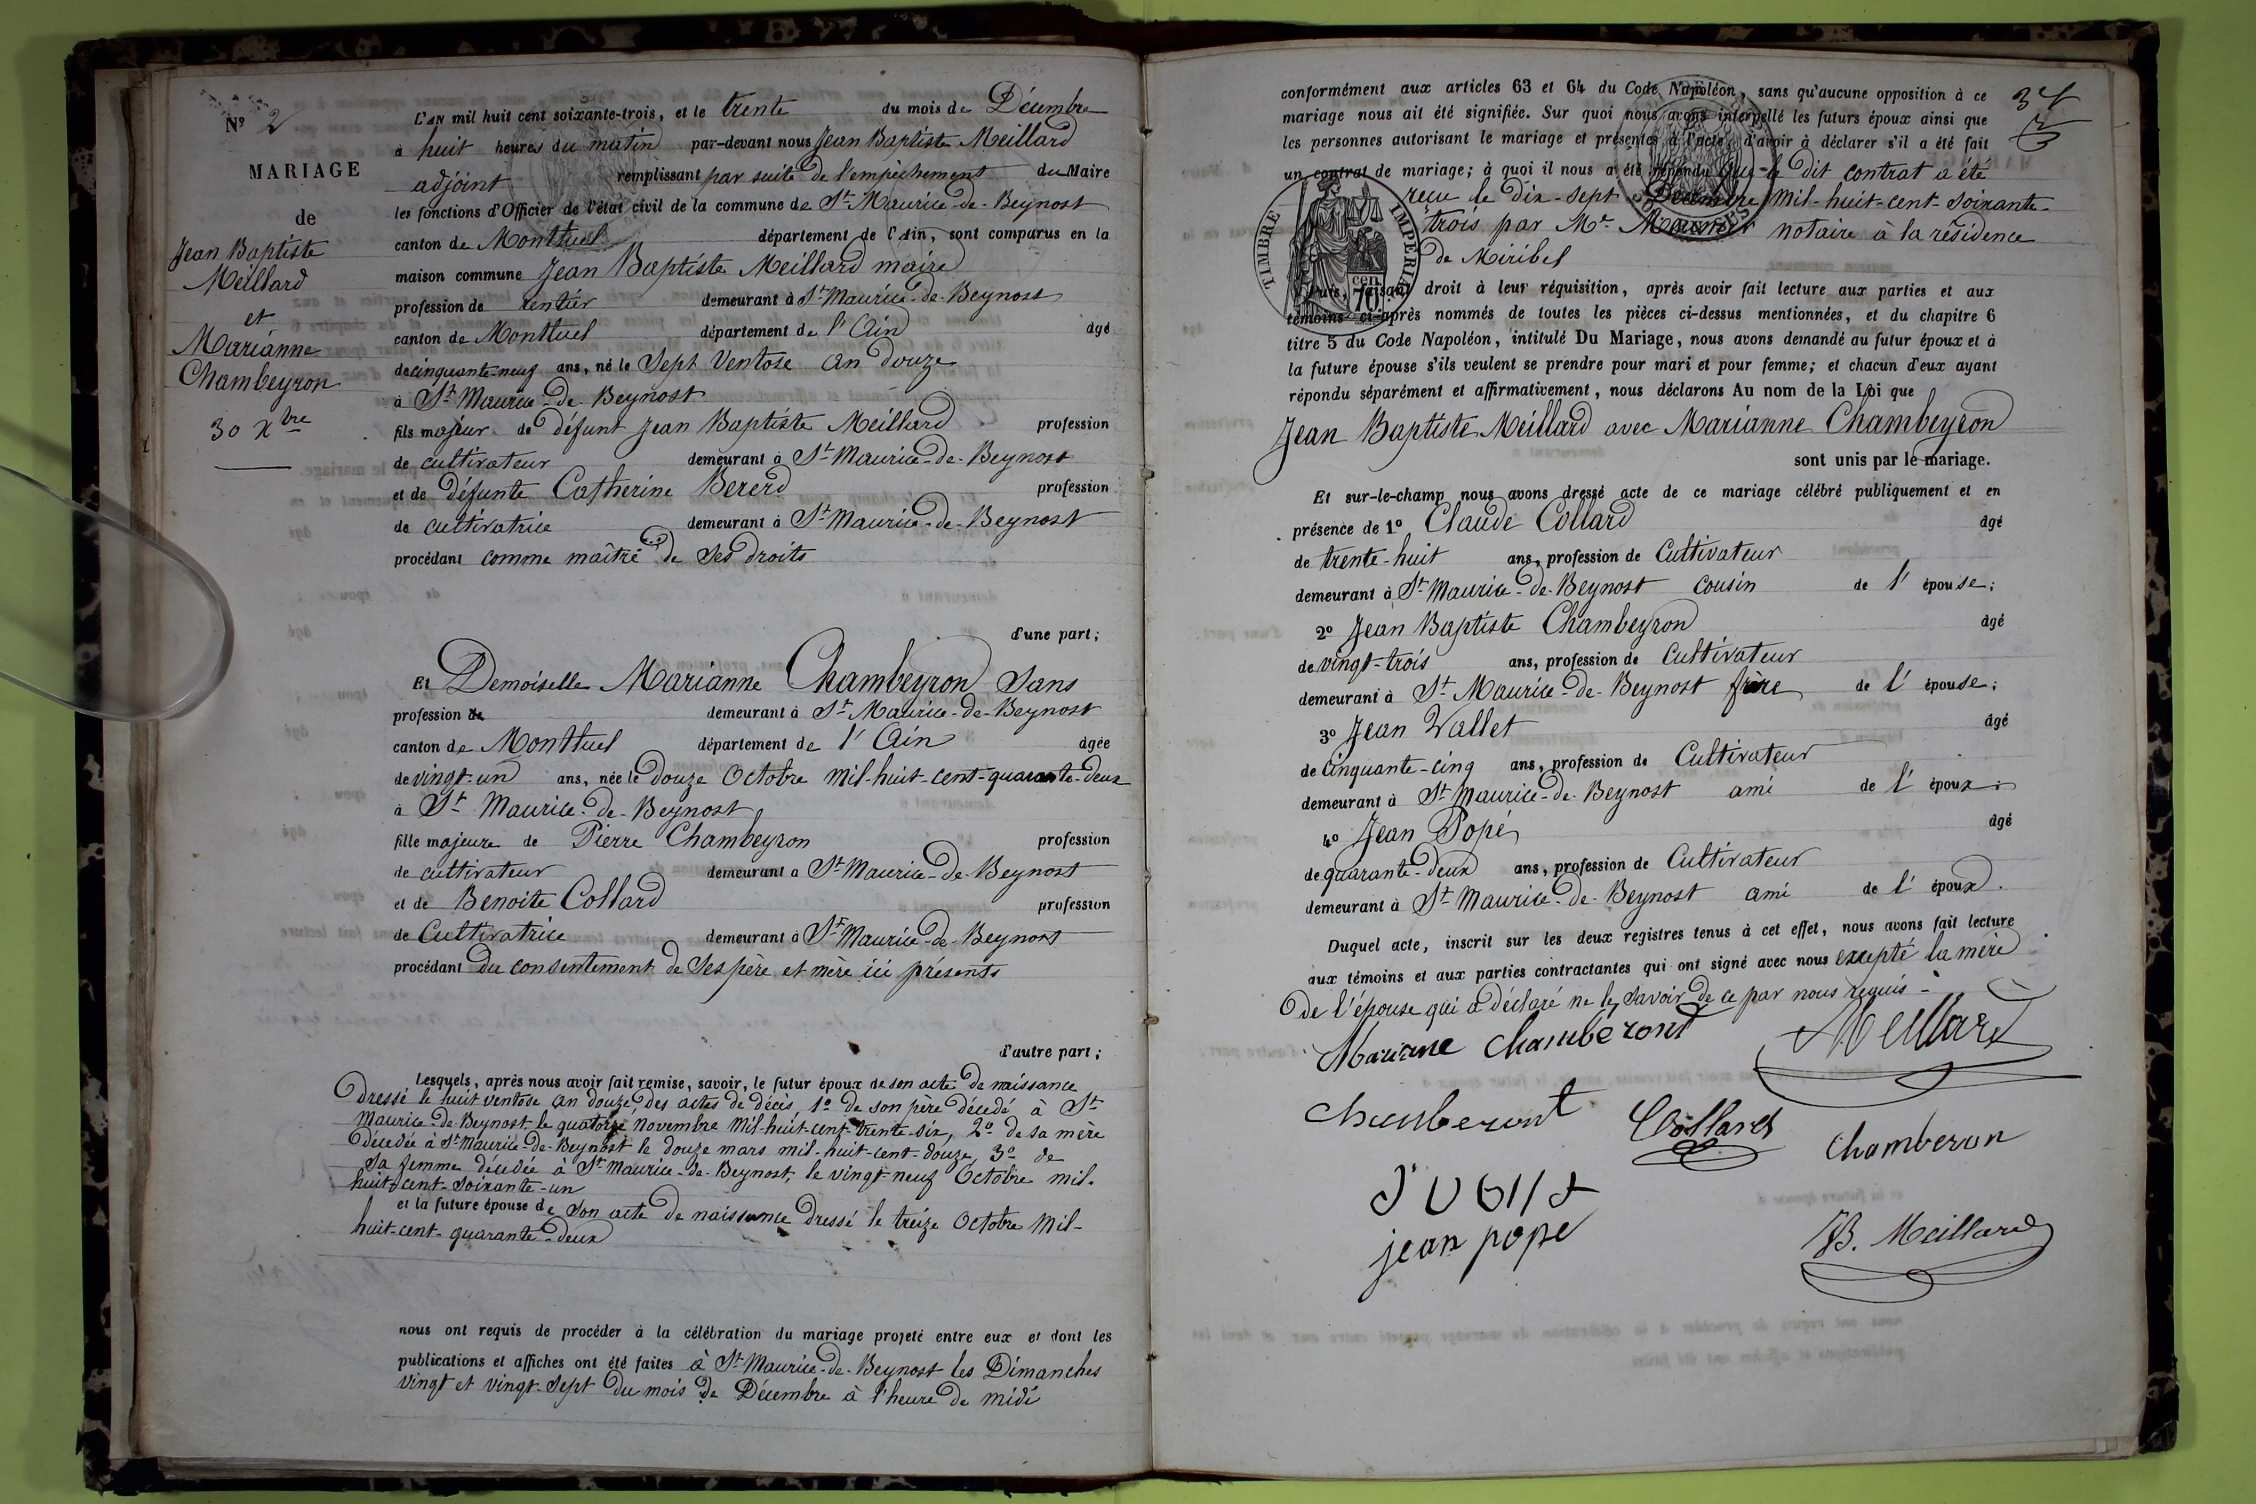 Nº 2
MARIAGE
de
Jean Baptiste
Meillard
et
Marianne
Chambeyron
30 Xbre
L'AN mil huit cent soixante-trois, et le trente du mois de Décembre
à huit heures du matin par-devant nous Jean Baptiste Meillard
adjoint remplissant par suite de l'empêchement du Maire
les fonctions d'Officier de l'état civil de la commune de St Maurice-de-Beynost
canton de Montluel département de l'Ain, sont comparus en la
maison commune Jean Baptiste Meillard maire
profession de rentier demeurant à St Maurice-de-Beynost
canton de Montluel département de l'Ain âgé
de cinquante-neuf ans, né le Sept Ventose an douze
à St Maurice-de-Beynost
fils majeur de défunt Jean Baptiste Meillard profession
de cultivateur demeurant à St Maurice-de-Beynost
et de défunte Catherine Bererd profession
de cultivatrice demeurant à St Maurice-de-Beynost
procédant comme maître de ses droits
d'une part;
Et Demoiselle Marianne Chambeyron Sans
profession de demeurant à St Maurice-de-Beynost
canton de Montluel département de l'Ain âgée
de vingt-un ans, née le douze Octobre mil-huit-cent-quarante-deux
à St Maurice-de-Beynost
fille majeure de Pierre Chambeyron profession
de cultivateur demeurant à St Maurice-de-Beynost
et de Benoite Collard profession
de Cultivatrice demeurant à St Maurice-de-Beynost
procédant du consentement de Ses père et mère ici présents
d'autre part;
Lesquels, après nous avoir fait remise, savoir, le futur époux de son acte de naissance
dressé le huit ventose an douze, des actes de décès, 1º de son père décédé à St
Maurice-de-Beynost le quatorze novembre mil-huit-cent-trente-six, 2º de sa mère
décédée à St Maurice-de-Beynost le douze mars mil-huit-cent-douze, 3º de
Sa femme décédée à St Maurice-de-Beynost, le vingt-neuf Octobre mil-
huit-cent-soixante-un
et la future épouse de Son acte de naissance dressé le treize Octobre mil-
huit-cent-quarante-deux
nous ont requis de procéder à la célébration du mariage projeté entre eux et dont les
publications et affiches ont été faites à St Maurice-de-Beynost les Dimanches
vingt et vingt-sept du mois de Décembre à l'heure de midi
conformément aux articles 63 et 64 du Code Napoléon, sans qu'aucune opposition à ce
mariage nous ait été signifiée. Sur quoi nous avons interpellé les futurs époux ainsi que
les personnes autorisant le mariage et présentes à l'acte, d'avoir à déclarer s'il a été fait
un contrat de mariage; à quoi il nous a été répondu que le dit contrat a été
reçu le dix-sept Décembre mil-huit-cent-soixante-
trois par Me notaire à la résidence
de Miribel
TIMBRE IMPERIAL
cen 70
Puis, faisant droit à leur réquisition, après avoir fait lecture aux parties et aux
témoins ci-après nommés de toutes les pièces ci-dessus mentionnées, et du chapitre 6
titre 5 du Code Napoléon, intitulé Du Mariage, nous avons demandé au futur époux et à
la future épouse s'ils veulent se prendre pour mari et pour femme; et chacun d'eux ayant
répondu séparément et affirmativement, nous déclarons Au nom de la Loi que
Jean Baptiste Meillard avec Marianne Chambeyron
sont unis par le mariage.
Et sur-le-champ nous avons dressé acte de ce mariage célébré publiquement et en
présence de 1º Claude Collard âgé
de trente-huit ans, profession de Cultivateur
demeurant à St Maurice-de-Beynost cousin de l'épouse;
2º Jean Baptiste Chambeyron âgé
de vingt-trois ans, profession de Cultivateur
demeurant à St Maurice-de-Beynost frère de l'épouse;
3º Jean Vallet âgé
de Cinquante-cinq ans, profession de Cultivateur
demeurant à St Maurice-de-Beynost ami de l'époux;
4º Jean Popé âgé
de quarante-deux ans, profession de Cultivateur
demeurant à St Maurice-de-Beynost ami de l'époux.
Duquel acte, inscrit sur les deux registres tenus à cet effet, nous avons fait lecture
aux témoins et aux parties contractantes qui ont signé avec nous excepté la mère
de l'épouse qui a déclaré ne le savoir de ce par nous requis
Marianne Chamberond Meillard
Chamberont Collard Chamberon
jean pope
JB. Meillard